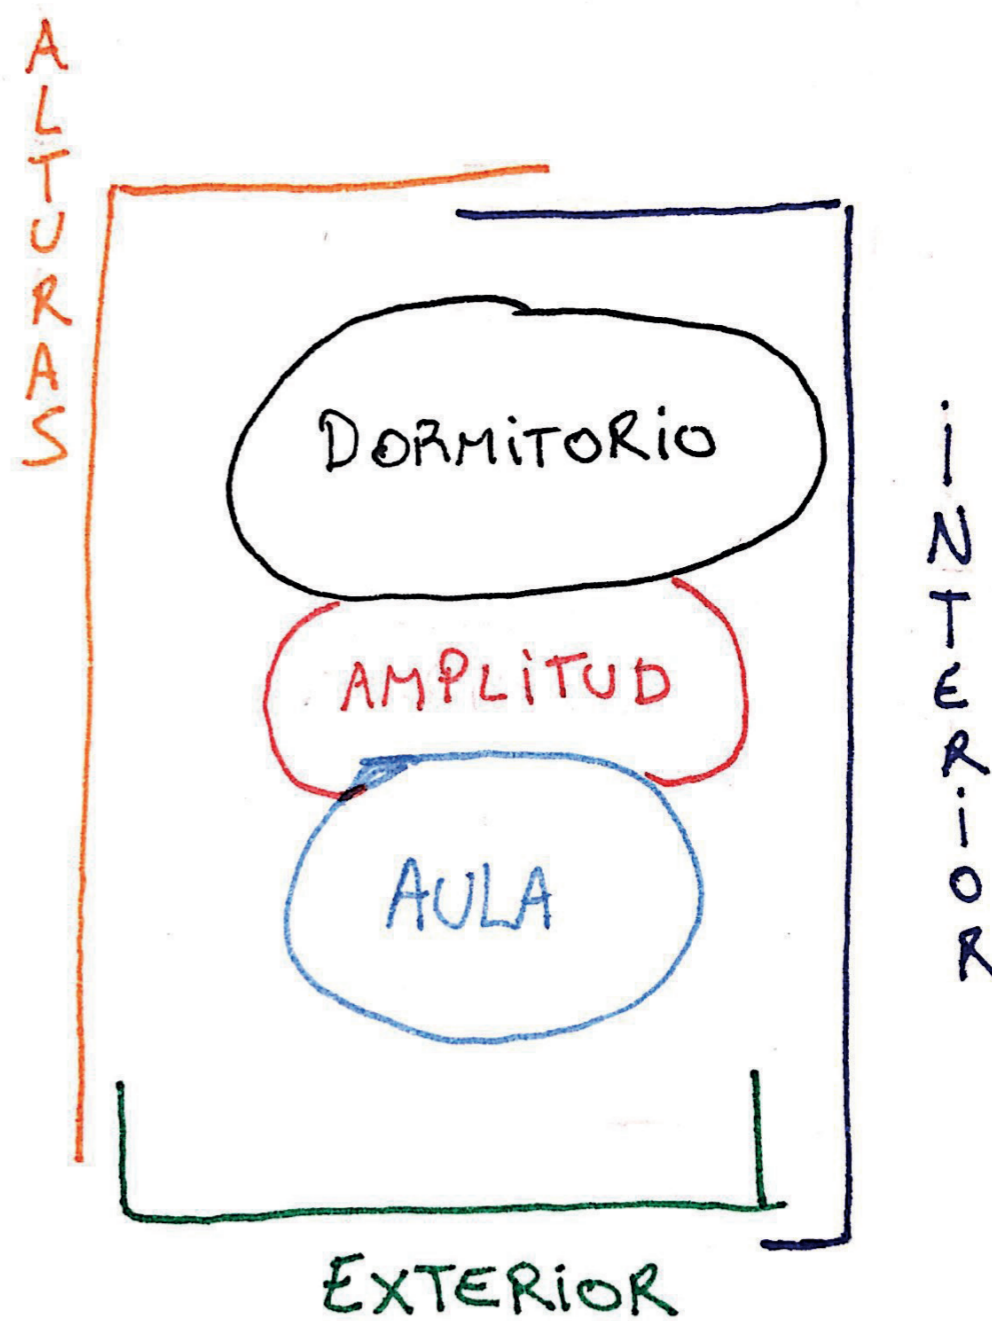 ALTURAS
DORMiTORiO
AMPLiTUD
AULA
iNTERiOR
EXTERiOR